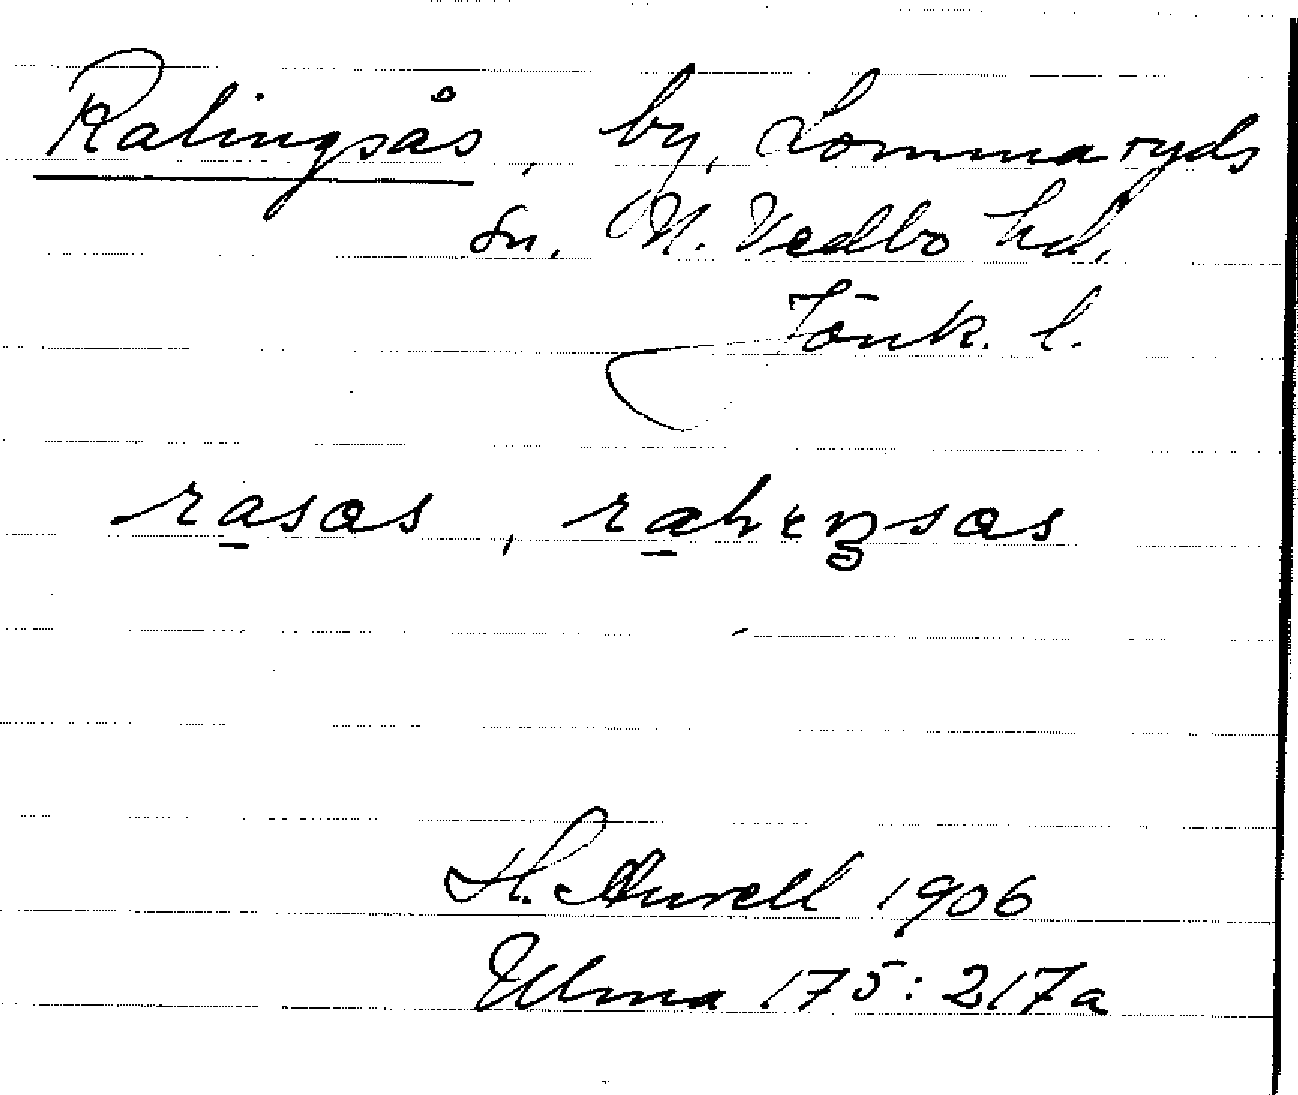 Ralingsås, by, Lommaryds
sn. N. Vedbo hd.
Jönk. l.
rasas, 
H. Aurell 1906
Ulma 175:217a